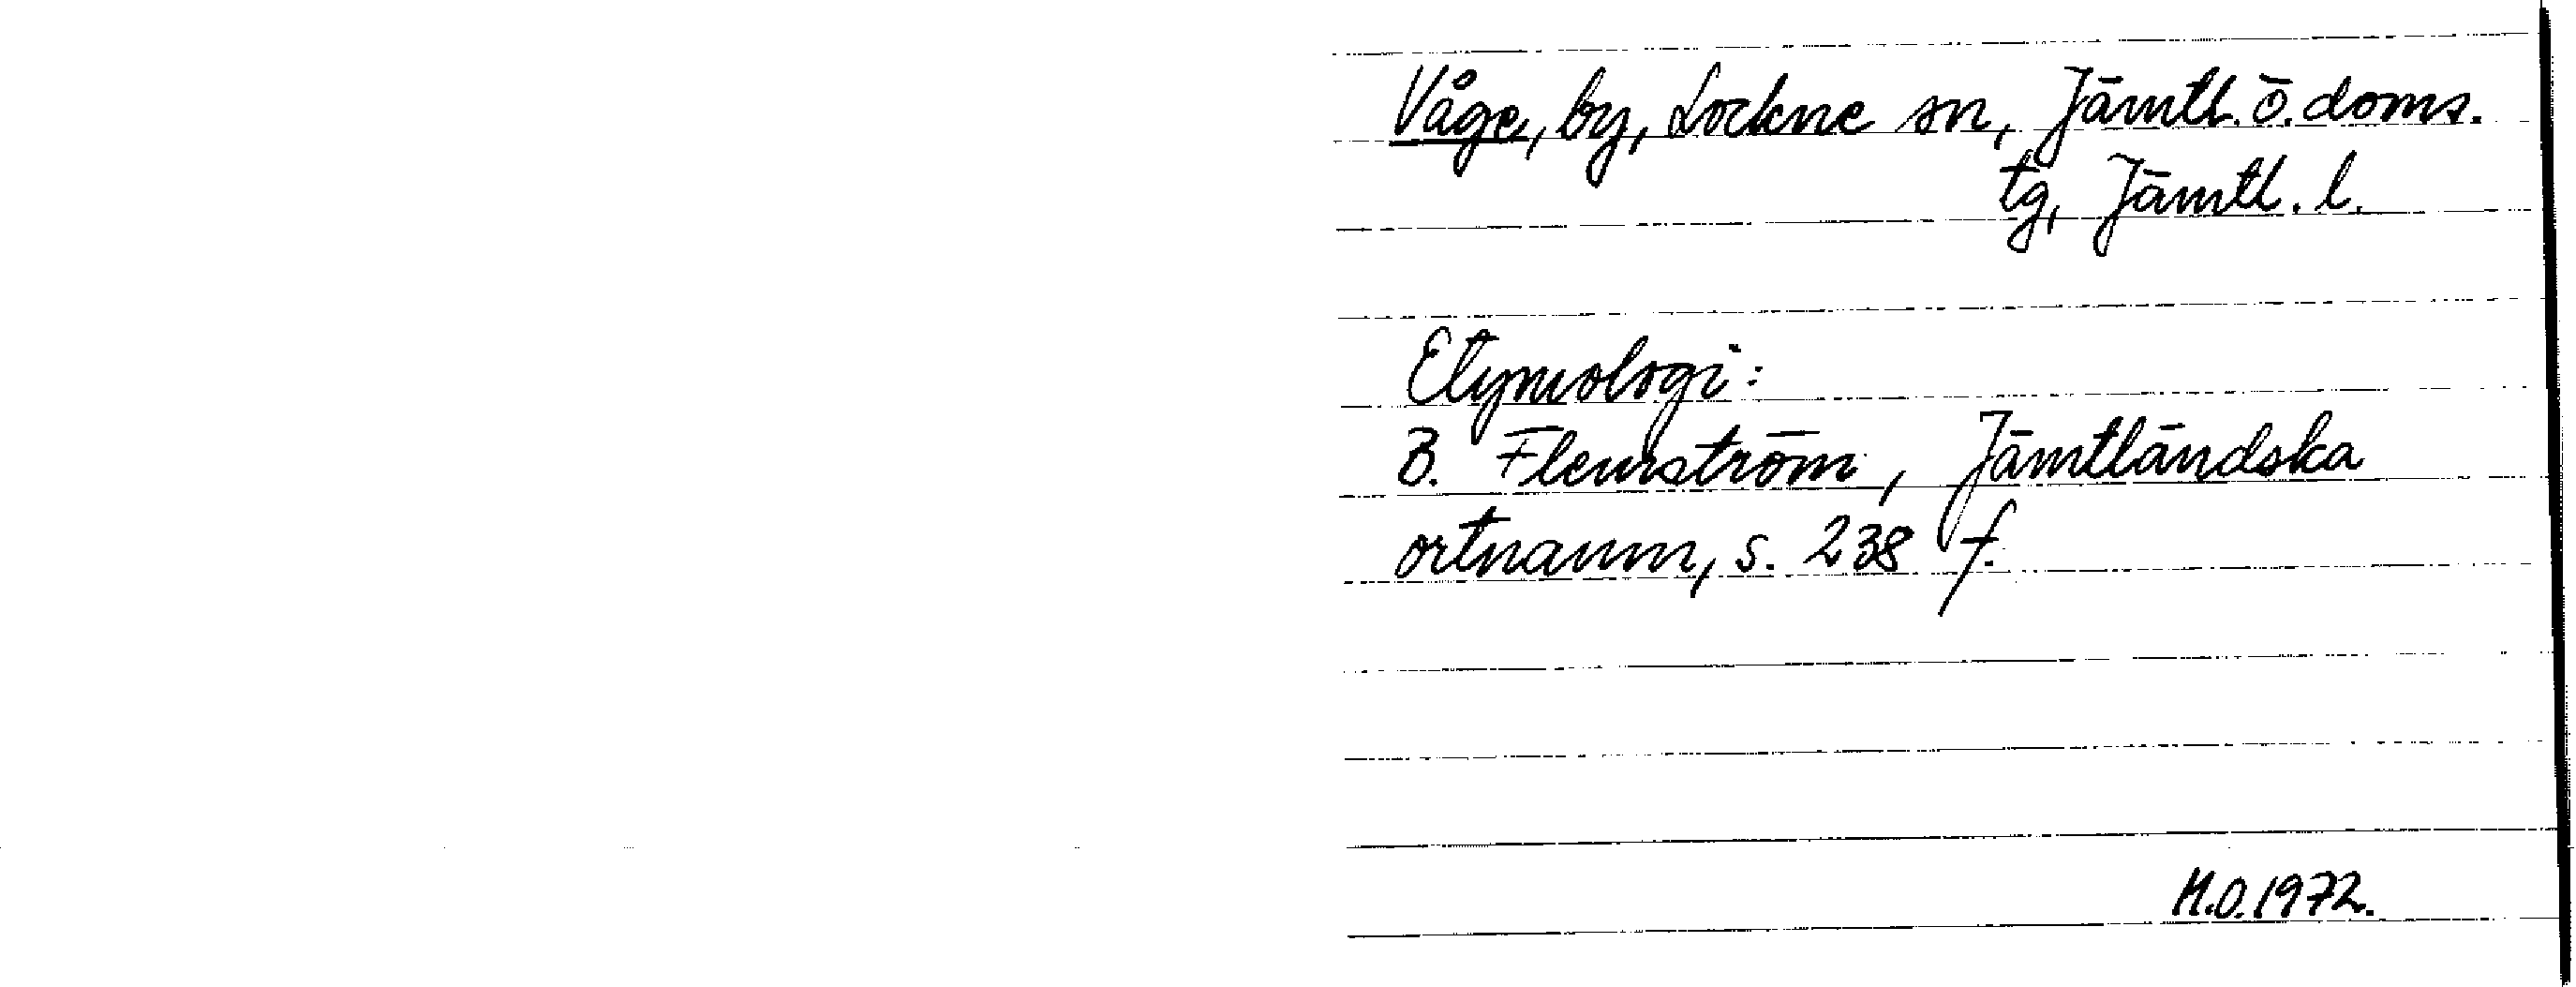 Våge, by, Lockne sn, Jämtl. ö. doms.
tg, Jämtl. l.
Etymologi:
B. Flemström, Jämtländska
ortnamn, s. 238 f.
M.O. 1972.